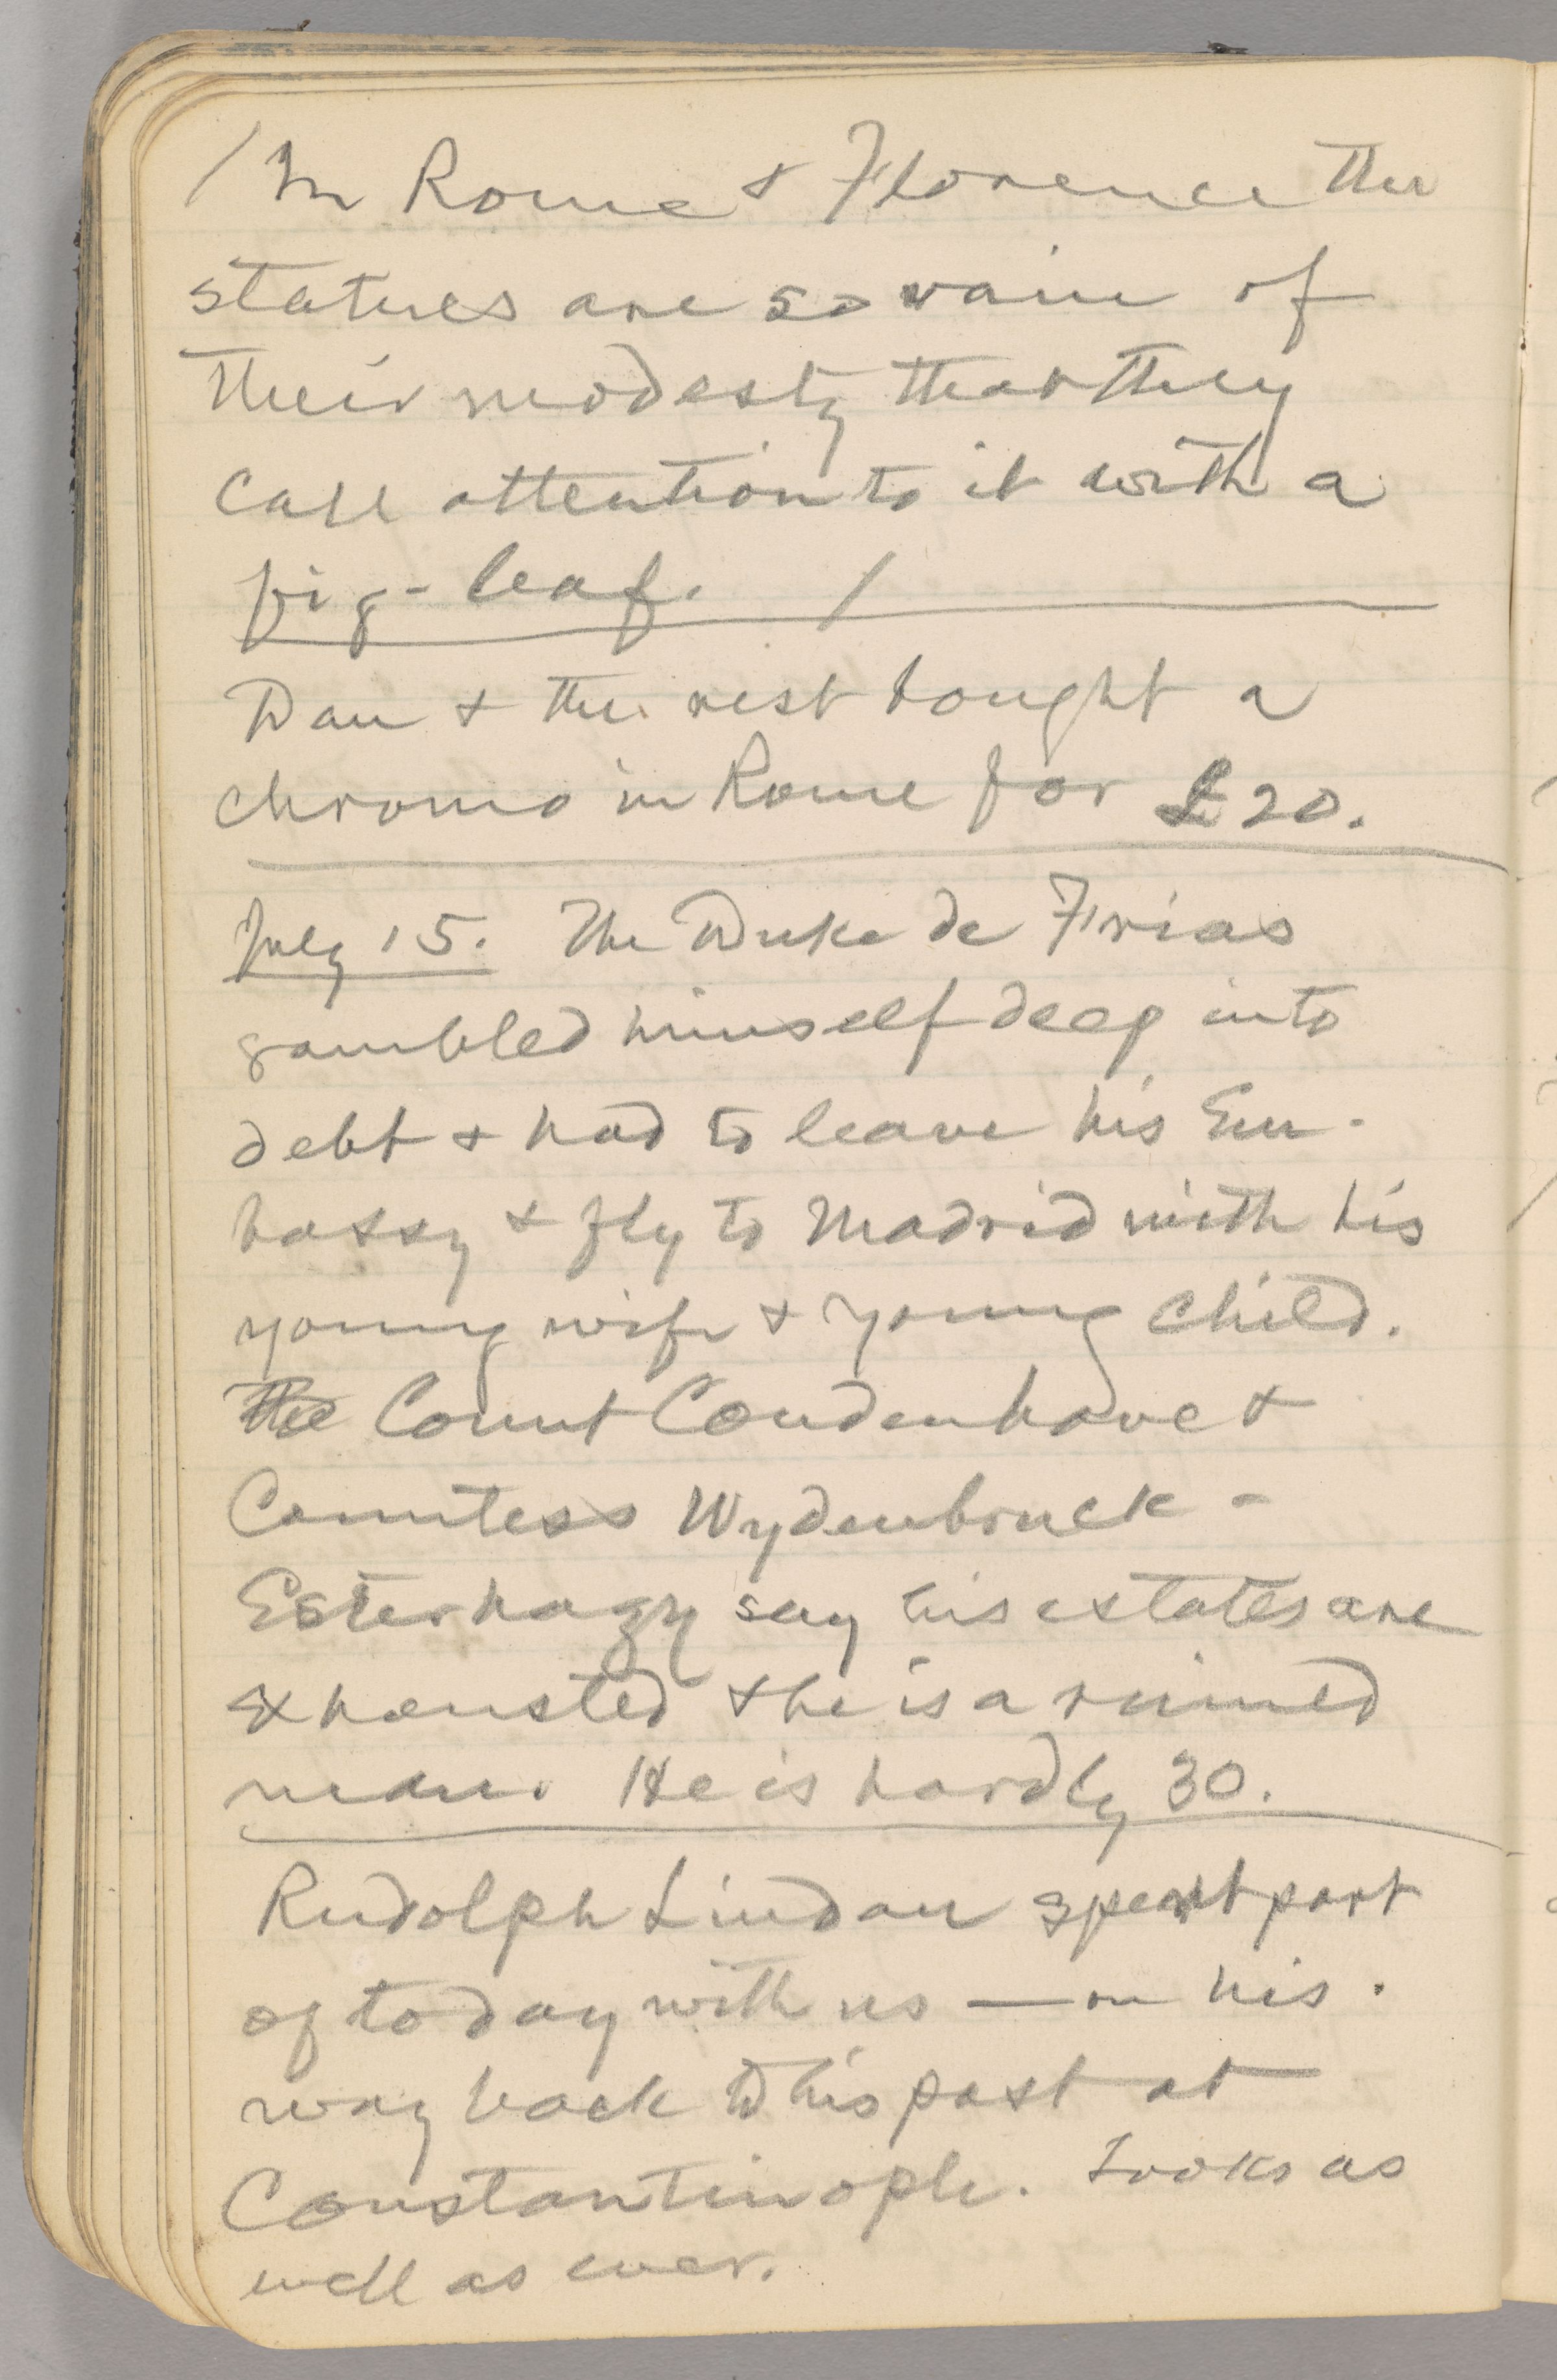 / In Rome & Florence the
statues are so vain of
their modesty that they
call attention to it with a
fig-leaf. /
Dan & the rest bought a
chromo in Rome for £20.
July 15. The Duke de Frias
gambled himself deep into
debt & had to leave his Em-
bassy & fly to Madrid with his
young wife & young child.
The Count Coudenhove &
Countess Wydenbruck-
Esterhazy say his estates are
exhausted & he is a ruined
man. He is hardly 30.
Rudolph Lindau spent part
of to day with us — on his
way back to his post at
Constantinople. Looks as
well as ever.